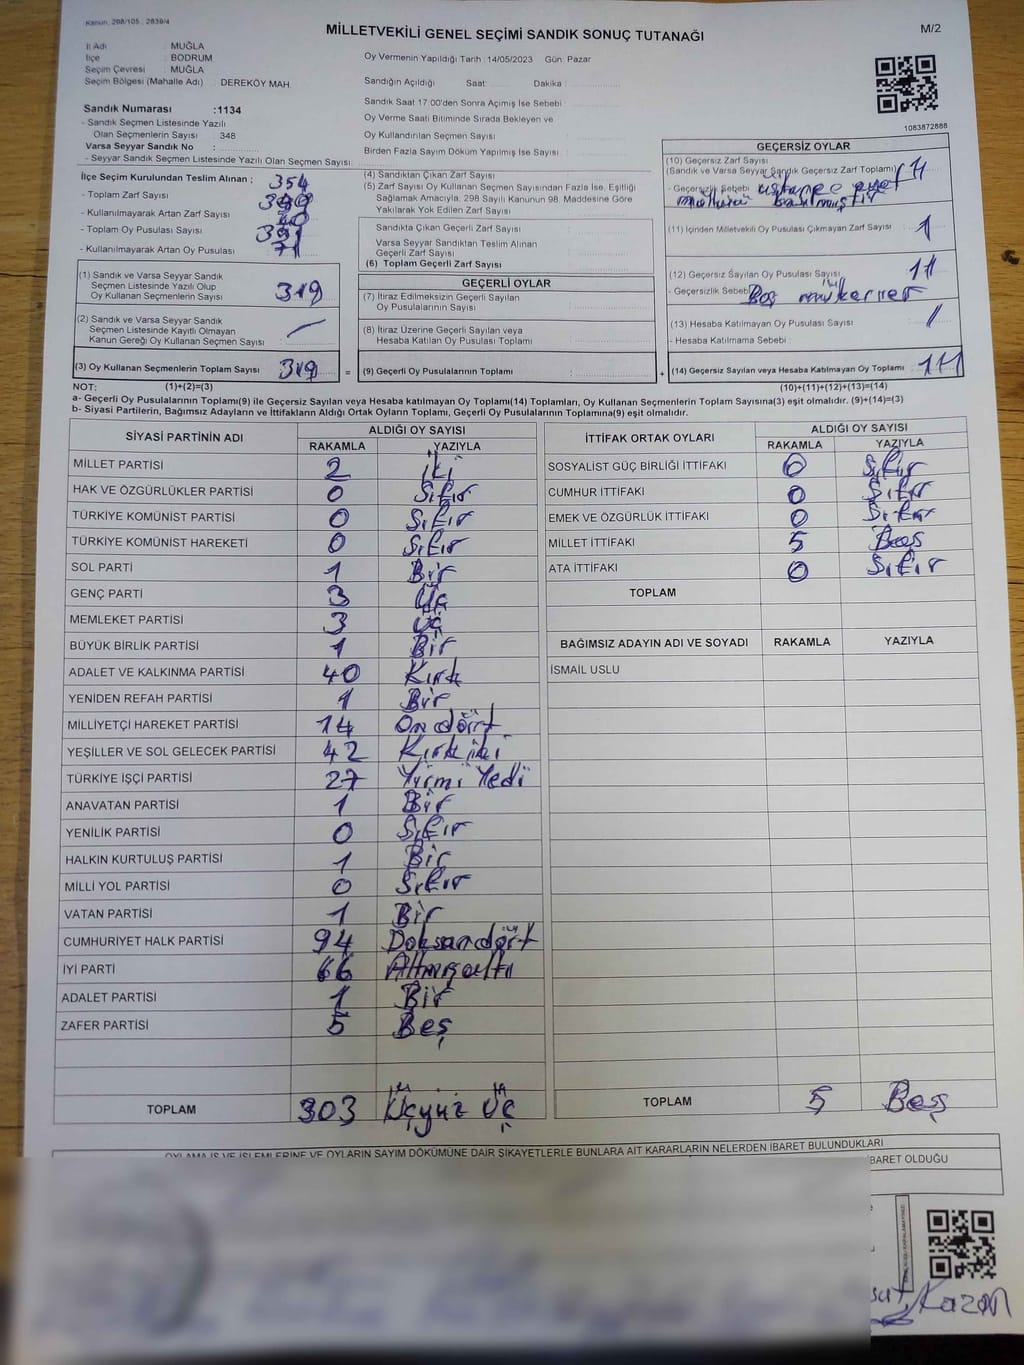 Kanun, 298/105 , 2839/4
MİLLETVEKİLİ GENEL SEÇİMİ SANDIK SONUÇ TUTANAĞI
M/2
İl Adı : MUĞLA
İlçe : BODRUM
Seçim Çevresi : MUĞLA
Seçim Bölgesi (Mahalle Adı) : DEREKÖY MAH.
Oy Vermenin Yapıldığı Tarih : 14/05/2023 Gün: Pazar
Sandığın Açıldığı Saat: Dakika :
Sandık Saat 17:00'den Sonra Açımış İse Sebebi :
Oy Verme Saati Bitiminde Sırada Bekleyen ve
Oy Kullandırılan Seçmen Sayısı :
Birden Fazla Sayım Döküm Yapılmış İse Sayısı :
1083872888
Sandık Numarası :1134
- Sandık Seçmen Listesinde Yazılı
Olan Seçmenlerin Sayısı : 348
Varsa Seyyar Sandık No :
- Seyyar Sandık Seçmen Listesinde Yazılı Olan Seçmen Sayısı:
İlçe Seçim Kurulundan Teslim Alınan ;
- Toplam Zarf Sayısı : 354
- Kullanılmayarak Artan Zarf Sayısı :
- Toplam Oy Pusulası Sayısı :
- Kullanılmayarak Artan Oy Pusulası : 71
(1) Sandık ve Varsa Seyyar Sandık
Seçmen Listesinde Yazılı Olup
Oy Kullanan Seçmenlerin Sayısı : 319
(2) Sandık ve Varsa Seyyar Sandık
Seçmen Listesinde Kayıtlı Olmayan
Kanun Gereği Oy Kullanan Seçmen Sayısı :
(3) Oy Kullanan Seçmenlerin Toplam Sayısı : 319 =
(4) Sandıktan Çıkan Zarf Sayısı
(5) Zarf Sayısı Oy Kullanan Seçmen Sayısından Fazla İse, Eşitliği
Sağlamak Amacıyla, 298 Sayılı Kanunun 98. Maddesine Göre
Yakılarak Yok Edilen Zarf Sayısı :
Sandıkta Çıkan Geçerli Zarf Sayısı :
Varsa Seyyar Sandıktan Teslim Alınan
Geçerli Zarf Sayısı :
(6) Toplam Geçerli Zarf Sayısı :
GEÇERLİ OYLAR
(7) İtiraz Edilmeksizin Geçerli Sayılan
Oy Pusulalarının Sayısı :
(8) İtiraz Üzerine Geçerli Sayılan veya
Hesaba Katılan Oy Pusulası Toplamı :
(9) Geçerli Oy Pusulalarının Toplamı : +
GEÇERSİZ OYLAR
(10) Geçersiz Zarf Sayısı
(Sandık ve Varsa Seyyar Sandık Geçersiz Zarf Toplamı) : 11
- Geçersizlik Sebebi : evet
mühürü basılmıştır
(11) İçinden Milletvekili Oy Pusulası Çıkmayan Zarf Sayısı : 1
(12) Geçersiz Sayılan Oy Pusulası Sayısı : 11
- Geçersizlik Sebebi : Boş mükerrer
(13) Hesaba Katılmayan Oy Pusulası Sayısı : 1
- Hesaba Katılmama Sebebi :
(14) Geçersiz Sayılan veya Hesaba Katılmayan Oy Toplamı : 111
NOT: (1)+(2)=(3) (10)+(11)+(12)+(13)=(14)
a- Geçerli Oy Pusulalarının Toplamı(9) ile Geçersiz Sayılan veya Hesaba katılmayan Oy Toplamı(14) Toplamları, Oy Kullanan Seçmenlerin Toplam Sayısına(3) eşit olmalıdır. (9)+(14)=(3)
b- Siyasi Partilerin, Bağımsız Adayların ve İttifakların Aldığı Ortak Oyların Toplamı, Geçerli Oy Pusulalarının Toplamına(9) eşit olmalıdır.
SİYASİ PARTİNİN ADI ALDIĞI OY SAYISI
RAKAMLA YAZIYLA
MİLLET PARTİSİ 2 İki
HAK VE ÖZGÜRLÜKLER PARTİSİ 0 Sıfır
TÜRKİYE KOMÜNİST PARTİSİ 0 Sıfır
TÜRKİYE KOMÜNİST HAREKETİ 0 Sıfır
SOL PARTİ 1 Bir
GENÇ PARTİ 3 Üç
MEMLEKET PARTİSİ 3 Üç
BÜYÜK BİRLİK PARTİSİ 1 Bir
ADALET VE KALKINMA PARTİSİ 40 Kırk
YENİDEN REFAH PARTİSİ 1 Bir
MİLLİYETÇİ HAREKET PARTİSİ 14 Ondört
YEŞİLLER VE SOL GELECEK PARTİSİ 42 Kırkiki
TÜRKİYE İŞÇİ PARTİSİ 27 Yirmi Yedi
ANAVATAN PARTİSİ 1 Bir
YENİLİK PARTİSİ 0 Sıfır
HALKIN KURTULUŞ PARTİSİ 1 Bir
MİLLİ YOL PARTİSİ 0 Sıfır
VATAN PARTİSİ 1 Bir
CUMHURİYET HALK PARTİSİ 94 Doksandört
İYİ PARTİ 66 Altmışaltı
ADALET PARTİSİ 1 Bir
ZAFER PARTİSİ 5 Beş
TOPLAM 303 Üçyüz Üç
İTTİFAK ORTAK OYLARI ALDIĞI OY SAYISI
RAKAMLA YAZIYLA
SOSYALİST GÜÇ BİRLİĞİ İTTİFAKI 0 Sıfır
CUMHUR İTTİFAKI 0 Sıfır
EMEK VE ÖZGÜRLÜK İTTİFAKI 0 Sıfır
MİLLET İTTİFAKI 5 Beş
ATA İTTİFAKI 0 Sıfır
TOPLAM
BAĞIMSIZ ADAYIN ADI VE SOYADI RAKAMLA YAZIYLA
İSMAİL USLU
TOPLAM 5 Beş
OYLAMA İŞ VE İŞLEMLERİNE VE OYLARIN SAYIM DÖKÜMÜNE DAİR ŞİKAYETLERLE BUNLARA AİT KARARLARIN NELERDEN İBARET BULUNDUKLARI
BARET OLDUĞU
Kazan